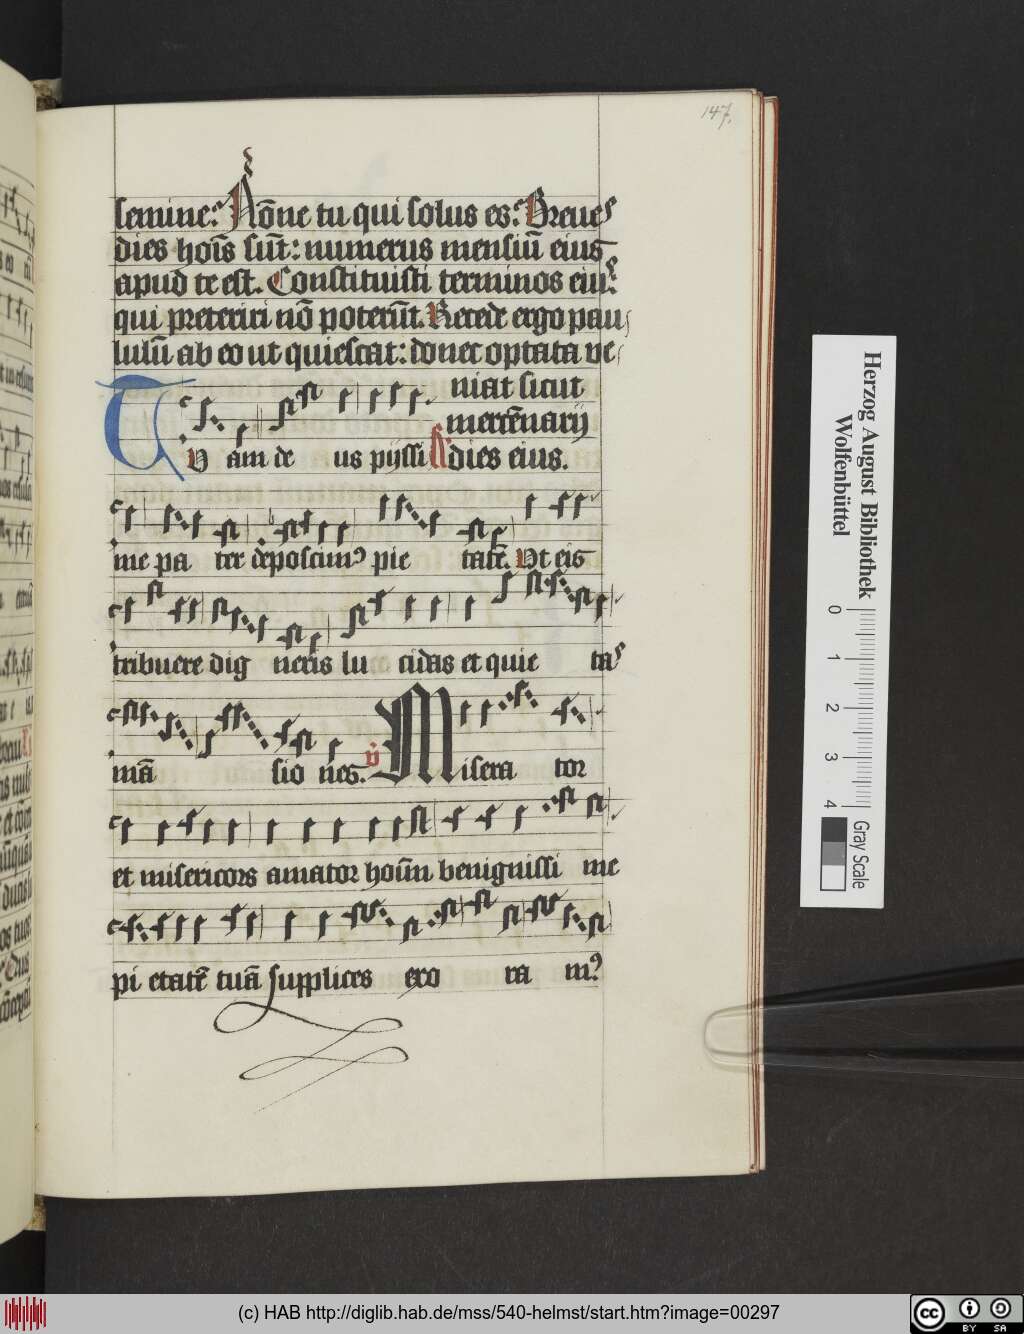 147.
semine: Nõne tu qui solus es: Breues
dies hoĩs sũt: numerus mensiũ eius
apud te est. Constituisti terminos eiu:
qui preteriri nõ poterũt. Recede ergo pau
lulũ ab eo ut quiescat: donec optata ve
niat sicut
mercẽnarij
Tuam de us pijssi R dies eius.
me pa ter deposcim9 pie tatẽ. Vt eis
tribuere dig neris lu cidas et quie tas
mã sio nes. v̇ Misera tor
et misericors amator hoũm benignissi me
pi etatẽ tuã supplices exo ra m9
Herzog August Bibliothek
Wolfenbüttel
0 1 2 3 4
Gray Scale
(c) HAB http://diglib.hab.de/mss/540-helmst/start.htm?image=00297
cc BY SA